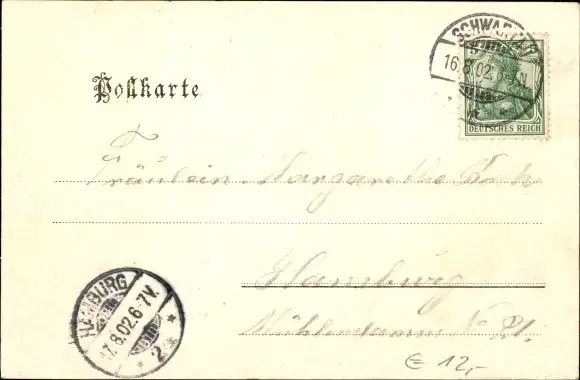 SCHWARTAU
16.8.02. 6-7N.
DEUTSCHES REICH
Postkarte
Fräulein Margarethe Koch
Hamburg
Mühlendamm No
HAMBURG
17.8.02.6-7V.
* 2 *
€ 12,-